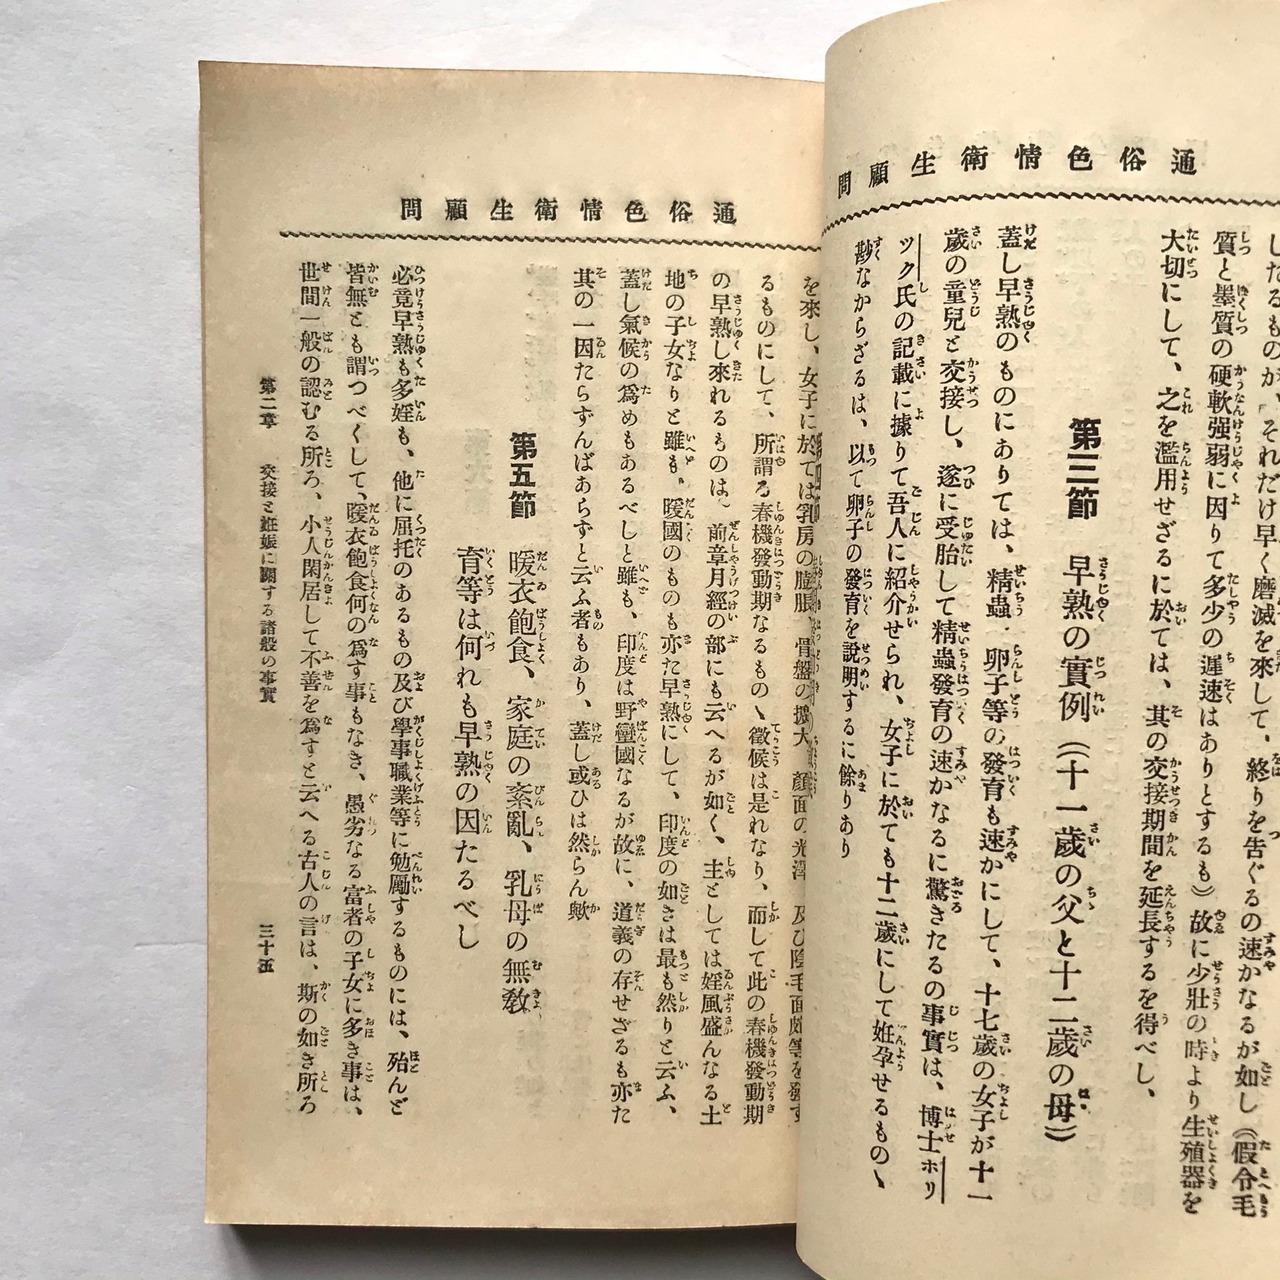 通俗色情衛生顧問
したるものが、それだけ早く磨滅を來して、終りを告ぐるの速かなるが如し（假令毛
質と墨質の硬軟强弱に因りて多少の遲速はありとするも）故に少壯の時より生殖器を
大切にして、之を濫用せざるに於ては、其の交接期間を延長するを得べし、
第三節　早熟の實例（十一歲の父と十二歲の母）
蓋し早熟のものにありては、精蟲、卵子等の發育も速かにして、十七歲の女子が十一
歲の童兒と交接し、遂に受胎して精蟲發育の速かなるに驚きたるの事實は、博士ホリ
ック氏の記載に據りて吾人に紹介せられ、女子に於ても十二歲にして姙孕せるもの丶
尠なからざるは、以て卵子の發育を說明するに餘りあり
通俗色情衛生顧問
を來し、女子に於ては乳房の膨脹、骨盤の擴大、顏面の光澤、及び陰毛面皰等を發す
るものにして、所謂る春機發動期なるもの丶徵候は是れなり、而して此の春機發動期
の早熟し來れるものは、前章月經の部にも云へるが如く、主としては婬風盛んなる土
地の子女なりと雖も、暖國のものも亦た早熟にして、印度の如きは最も然りと云ふ、
蓋し氣候の爲めもあるべしと雖も、印度は野蠻國なるが故に、道義の存せざるも亦た
其の一因たらずんばあらずと云ふ者もあり、蓋し或ひは然らん歟
第五節　暖衣飽食、家庭の紊亂、乳母の無敎
育等は何れも早熟の因たるべし
必竟早熟も多婬も、他に屈托のあるもの及び學事職業等に勉勵するものには、殆んど
皆無とも謂つべくして、暖衣飽食何の爲す事もなき、愚劣なる富者の子女に多き事は、
世間一般の認むる所ろ、小人閑居して不善を爲すと云へる古人の言は、斯の如き所ろ
第二章　交接と姙娠に關する諸般の事實　三十五